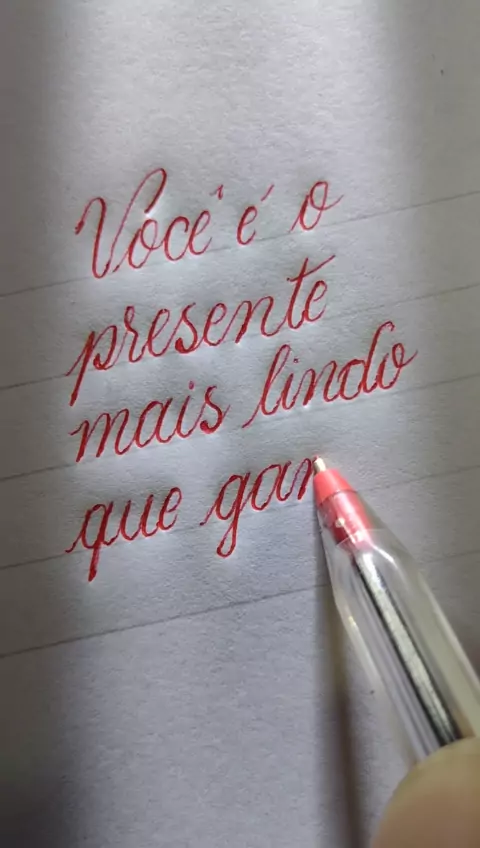 Você é o
presente
mais lindo
que gan